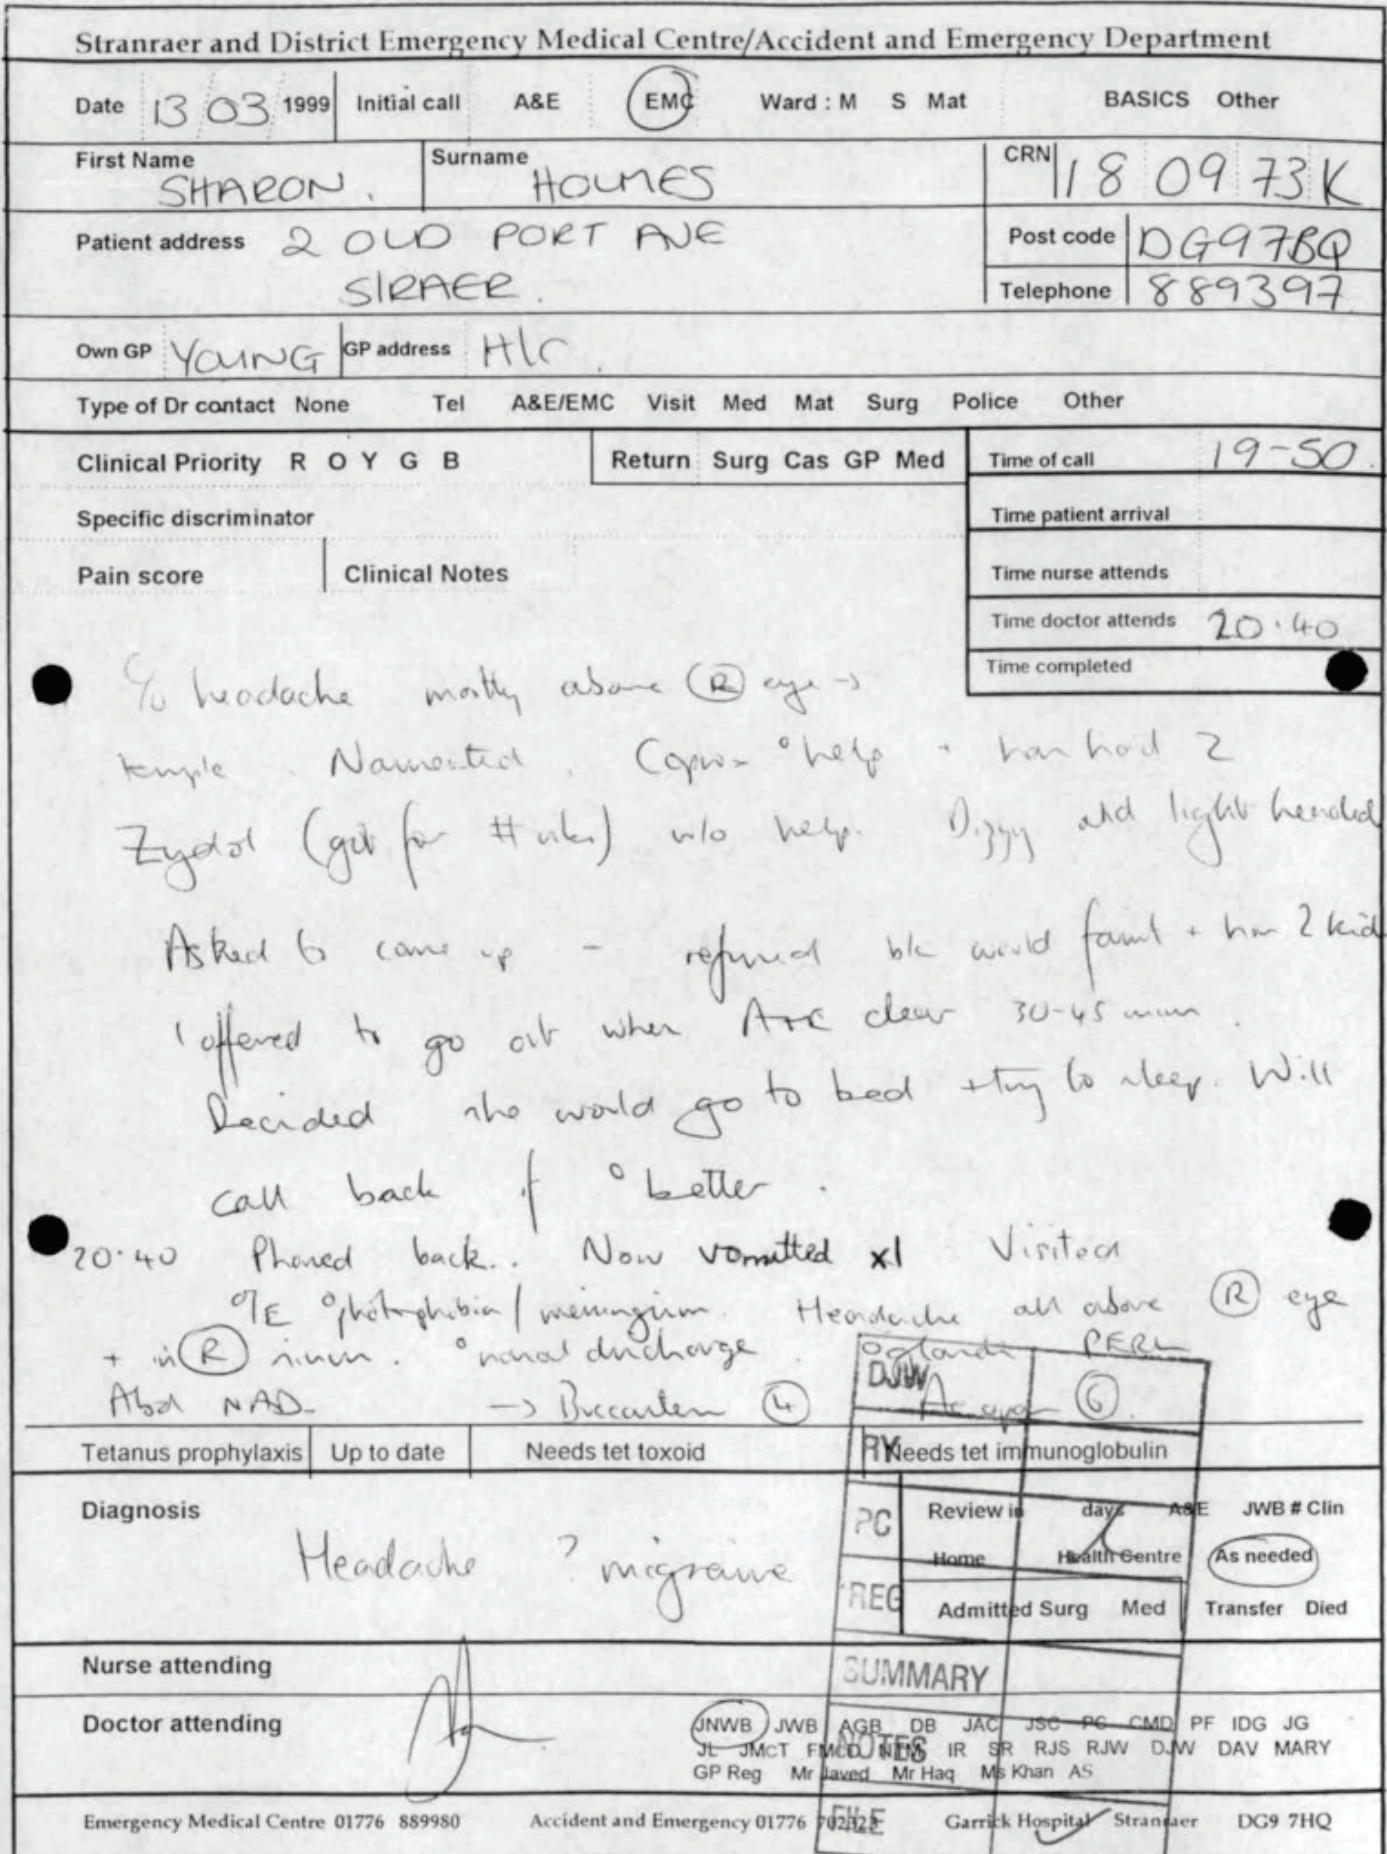 Stranraer and District Emergency Medical Centre/Accident and Emergency Department
Date 13 03 1999 Initial call A&E EMC Ward : M S Mat BASICS Other
First Name SHARON. Surname HOLMES CRN 18 09 73 K
Patient address 2 OLD PORT AVE Post code DG97BQ
S/RAER. Telephone 889397
Own GP YOUNG GP address H/C.
Type of Dr contact None Tel A&E/EMC Visit Med Mat Surg Police Other
Clinical Priority R O Y G B Return Surg Cas GP Med Time of call 19-50.
Specific discriminator Time patient arrival
Pain score Clinical Notes Time nurse attends
Time doctor attends 20.40
Time completed
c/o headache mostly above R eye →
temple. Nauseated. Coprox ° help + has had 2
Zydol (got for # ribs) w/o help. Dizzy and light headed
Asked to come up - refused b/c would faint + has 2 kids
I offered to go out when A+E clear 30-45 mins.
Decided she would go to bed + try to sleep. Will
call back if ° better.
20.40 Phoned back.. Now vomitted x1 Visited
O/E ° photophobia / meningism. Headache all above R eye
+ in R sinus. ° nasal discharge. ° glands PERL
Abd NAD. → Buccastem 4 6
Tetanus prophylaxis Up to date Needs tet toxoid Needs tet immunoglobulin
Diagnosis Headache ? migraine
Review in days A&E JWB # Clin
Home Health Centre As needed
Admitted Surg Med Transfer Died
Nurse attending
Doctor attending
JNWB JWB AGB DB JAC JSC PG CMD PF IDG JG
JL JMcT FMcD IR SR RJS RJW DJW DAV MARY
GP Reg Mr Javed Mr Haq Ms Khan AS
DJW
RY
PC
REG
SUMMARY
NOTES
FILE
Emergency Medical Centre 01776 889980 Accident and Emergency 01776 Garrick Hospital Stranraer DG9 7HQ